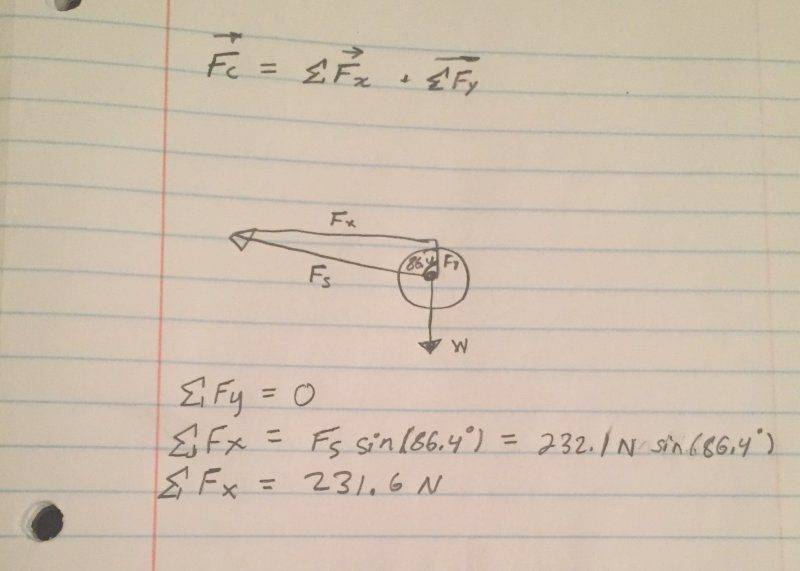 Fc = ΣFx + ΣFy
Fx
86.4° Fy
Fs
W
ΣFy = 0
ΣFx = Fs sin(86.4°) = 232.1 N sin(86.4°)
ΣFx = 231.6 N